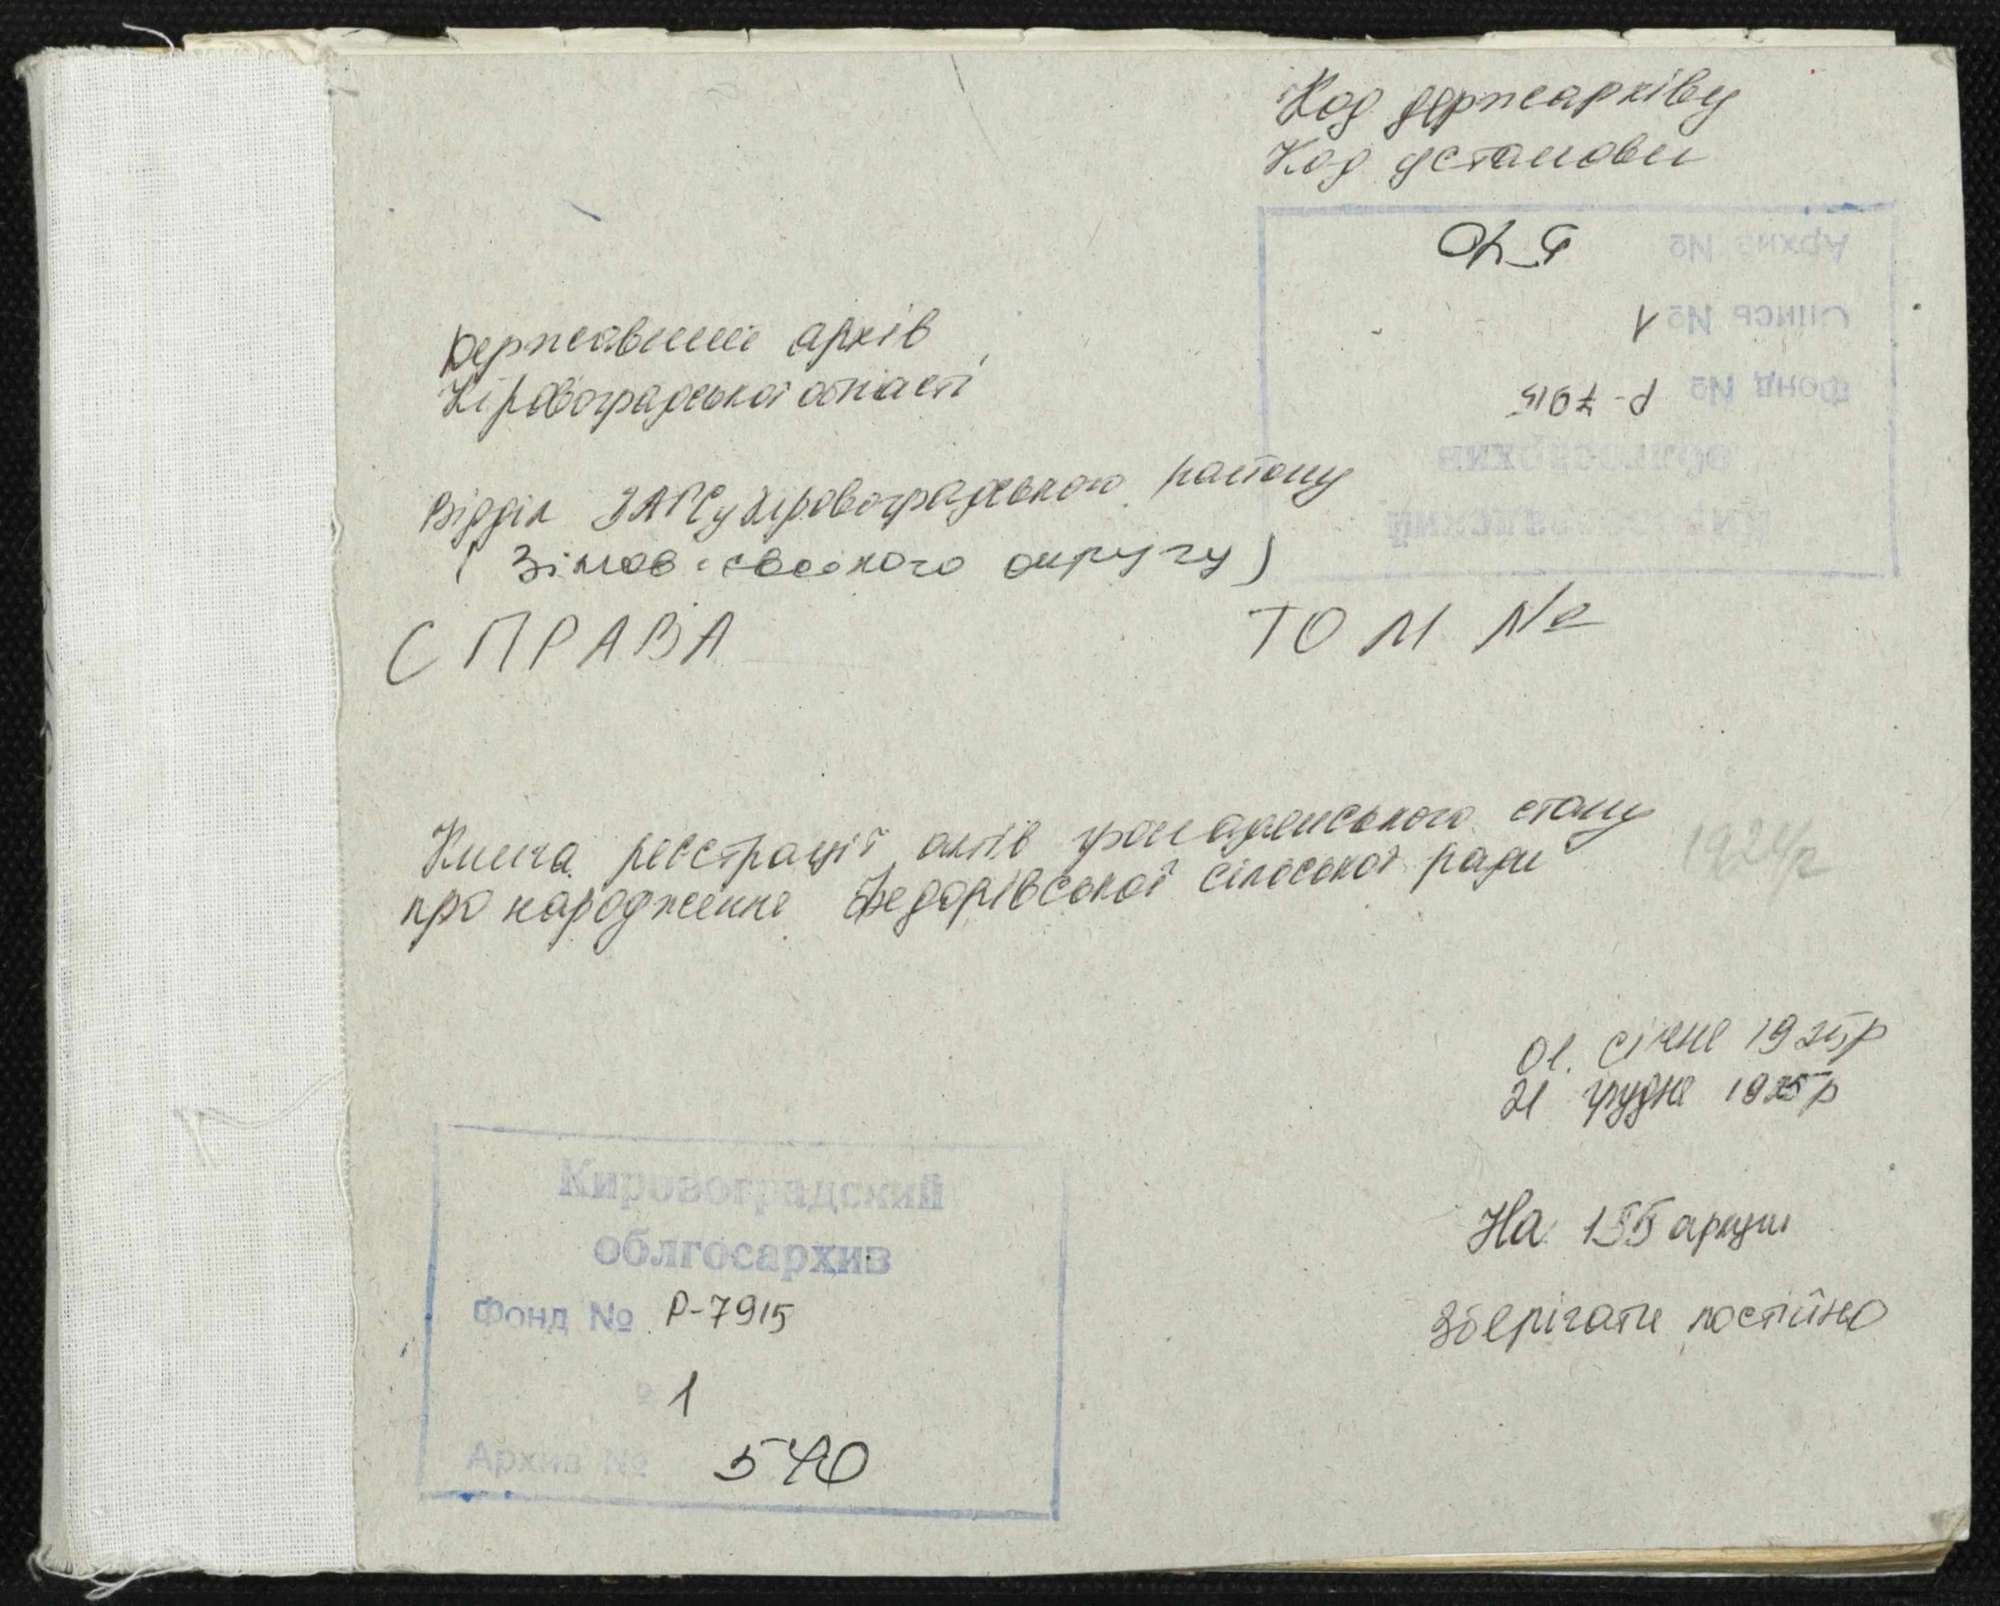 Код держархіву
Код установи
Архив № 540
Опись № 1
Фонд № Р-7915
облгосархив
Кировоградский
Державний архів
Кіровоградської області
Відділ ЗАГСу Кіровоградського району
( округу)
СПРАВА ТОМ №
Книга реєстрації актів громадянського стану
про народження Федорівської сільської ради
01. січня 1925р
31 грудня 1925р
На 155 аркуш
Зберігати постійно
Кировоградский
облгосархив
Фонд № Р-7915
№ 1
Архив № 540